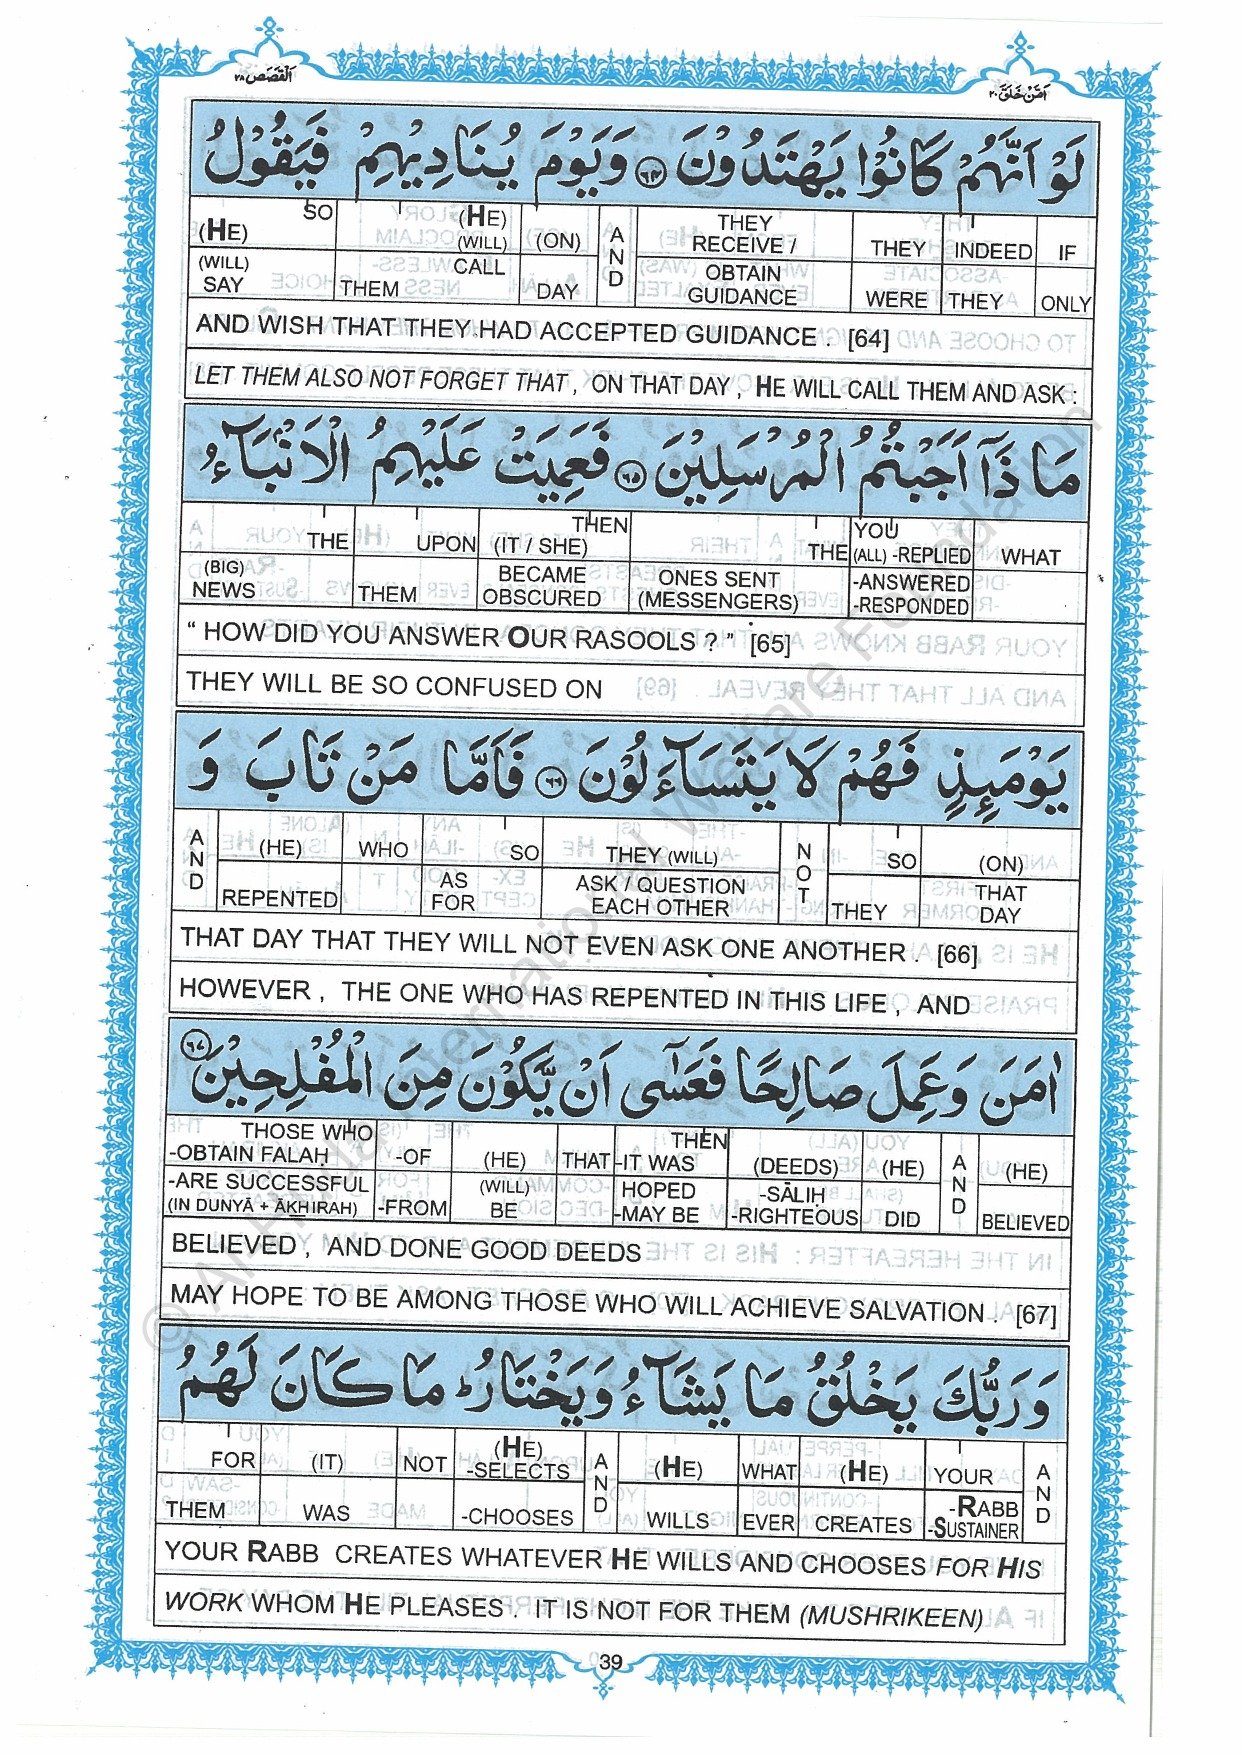 اَلْقَصَص ٢٨
اَمَّنْ خَلَقَ ٢٠
لَوْ اَنَّهُمْ كَانُوْا يَهْتَدُوْنَ ﴿٦٤﴾ وَيَوْمَ يُنَادِيْهِمْ فَيَقُوْلُ
SO (HE) (HE) (WILL) (ON) AND THEY RECEIVE / THEY INDEED IF
(WILL) SAY THEM CALL DAY OBTAIN GUIDANCE WERE THEY ONLY
AND WISH THAT THEY HAD ACCEPTED GUIDANCE . [64]
LET THEM ALSO NOT FORGET THAT , ON THAT DAY , HE WILL CALL THEM AND ASK :
مَا ذَآ اَجَبْتُمُ الْمُرْسَلِيْنَ ﴿٦٥﴾ فَعَمِيَتْ عَلَيْهِمُ الْاَنْۢبَآءُ
THE UPON THEN (IT / SHE) THE YOU (ALL) -REPLIED WHAT
(BIG) NEWS THEM BECAME OBSCURED ONES SENT (MESSENGERS) -ANSWERED -RESPONDED
“ HOW DID YOU ANSWER OUR RASOOLS ? ” [65]
THEY WILL BE SO CONFUSED ON
يَوْمَئِذٍ فَهُمْ لَا يَتَسَآءَلُوْنَ ﴿٦٦﴾ فَاَمَّا مَنْ تَابَ وَ
AND (HE) WHO SO THEY (WILL) NOT SO (ON)
REPENTED AS FOR ASK / QUESTION EACH OTHER THEY THAT DAY
THAT DAY THAT THEY WILL NOT EVEN ASK ONE ANOTHER . [66]
HOWEVER , THE ONE WHO HAS REPENTED IN THIS LIFE , AND
اٰمَنَ وَعَمِلَ صَالِحًا فَعَسٰٓى اَنْ يَّكُوْنَ مِنَ الْمُفْلِحِيْنَ ﴿٦٧﴾
THOSE WHO -OBTAIN FALAH -OF (HE) THAT THEN -IT WAS (DEEDS) (HE) AND (HE)
-ARE SUCCESSFUL (IN DUNYĀ + ĀKHIRAH) -FROM (WILL) BE HOPED -MAY BE -SĀLIH -RIGHTEOUS DID BELIEVED
BELIEVED , AND DONE GOOD DEEDS
MAY HOPE TO BE AMONG THOSE WHO WILL ACHIEVE SALVATION . [67]
وَرَبُّكَ يَخْلُقُ مَا يَشَآءُ وَيَخْتَارُ ؕ مَا كَانَ لَهُمُ
FOR (IT) NOT (HE) -SELECTS AND (HE) WHAT (HE) YOUR AND
THEM WAS -CHOOSES WILLS EVER CREATES -RABB -SUSTAINER
YOUR RABB CREATES WHATEVER HE WILLS AND CHOOSES FOR HIS
WORK WHOM HE PLEASES . IT IS NOT FOR THEM (MUSHRIKEEN)
39